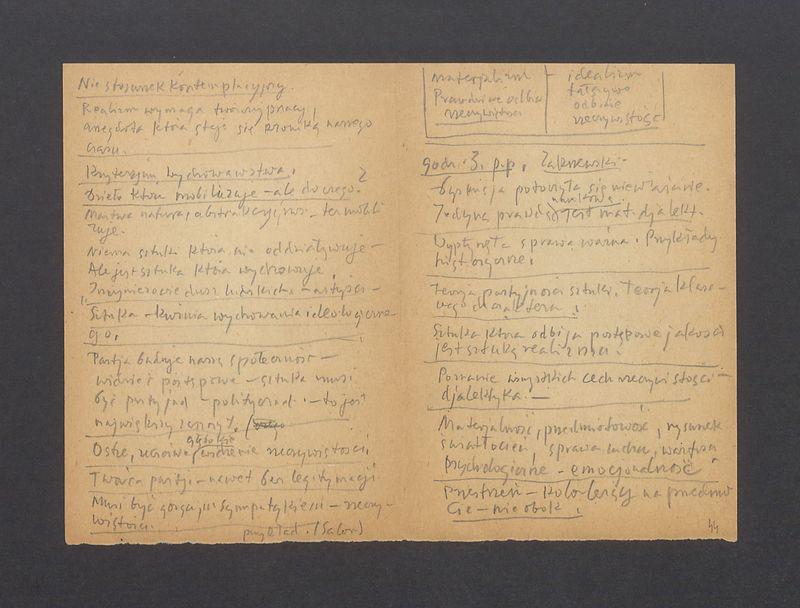 Nie stosunek kontemplacyjny.
Realizm wymaga twórczej pracy,
anegdota która staje się kroniką naszego
czasu.
Kryterium wychowawstwa.
Dzieło które mobilizuje – ale do czego. ?
Martwa natura, abstrakcyjizm – też mobili
zuje.
Niema sztuki która nie oddziaływuje –
Ale jest sztuka która wychowuje.
Inżynierowie dusz ludzkich – artyści –
Sztuka – kuźnia wychowania ideologiczne-
go.
Partja buduje naszą społeczność –
widzieć postępowe – sztuka musi
być partyjna – polityczna – to jest
największy zaszczyt.
Ostre, uczciwe, głębokie widzenie rzeczywistości
Twórca partji – nawet bez legitymacji
Musi być gorącym sympatykiem – rzeczy-
wistości.
przykład. (Salon)
materjalizm – idealizm
Prawdziwe odbicie fałszywe
rzeczywistości odbicie
rzeczywistość
godz. 3. p.p. Zakrzewski.
Dyskusja potoczyła się niewłaśnie.
Jedyną prawdą naukową jest mat. djalekt.
Wypłynęła sprawa ważna. Przykłady
historyczne.
Teorja partyjności sztuki. Teorja klaso-
wego charakteru.
Sztuka która odbija postępowe jakości
jest sztuką realizmu.
Poznanie wszystkich cech rzeczywistości –
djalektyka. –
Materjalność, przedmiotowość, rysunek
światłocień, sprawa ruchu, wartości
psychologiczne – emocjonalność
Przestrzeń – Kolor leżący na przedmio
cie – nie obok.
44